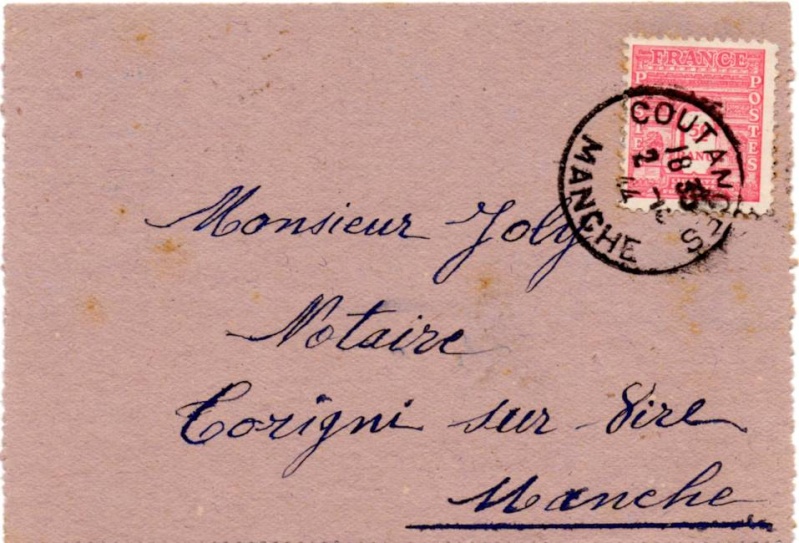 FRANCE
POSTES
COUTANCES
18 35
2
44
MANCHE
Monsieur Joly
Notaire
Torigni sur Vire
Manche